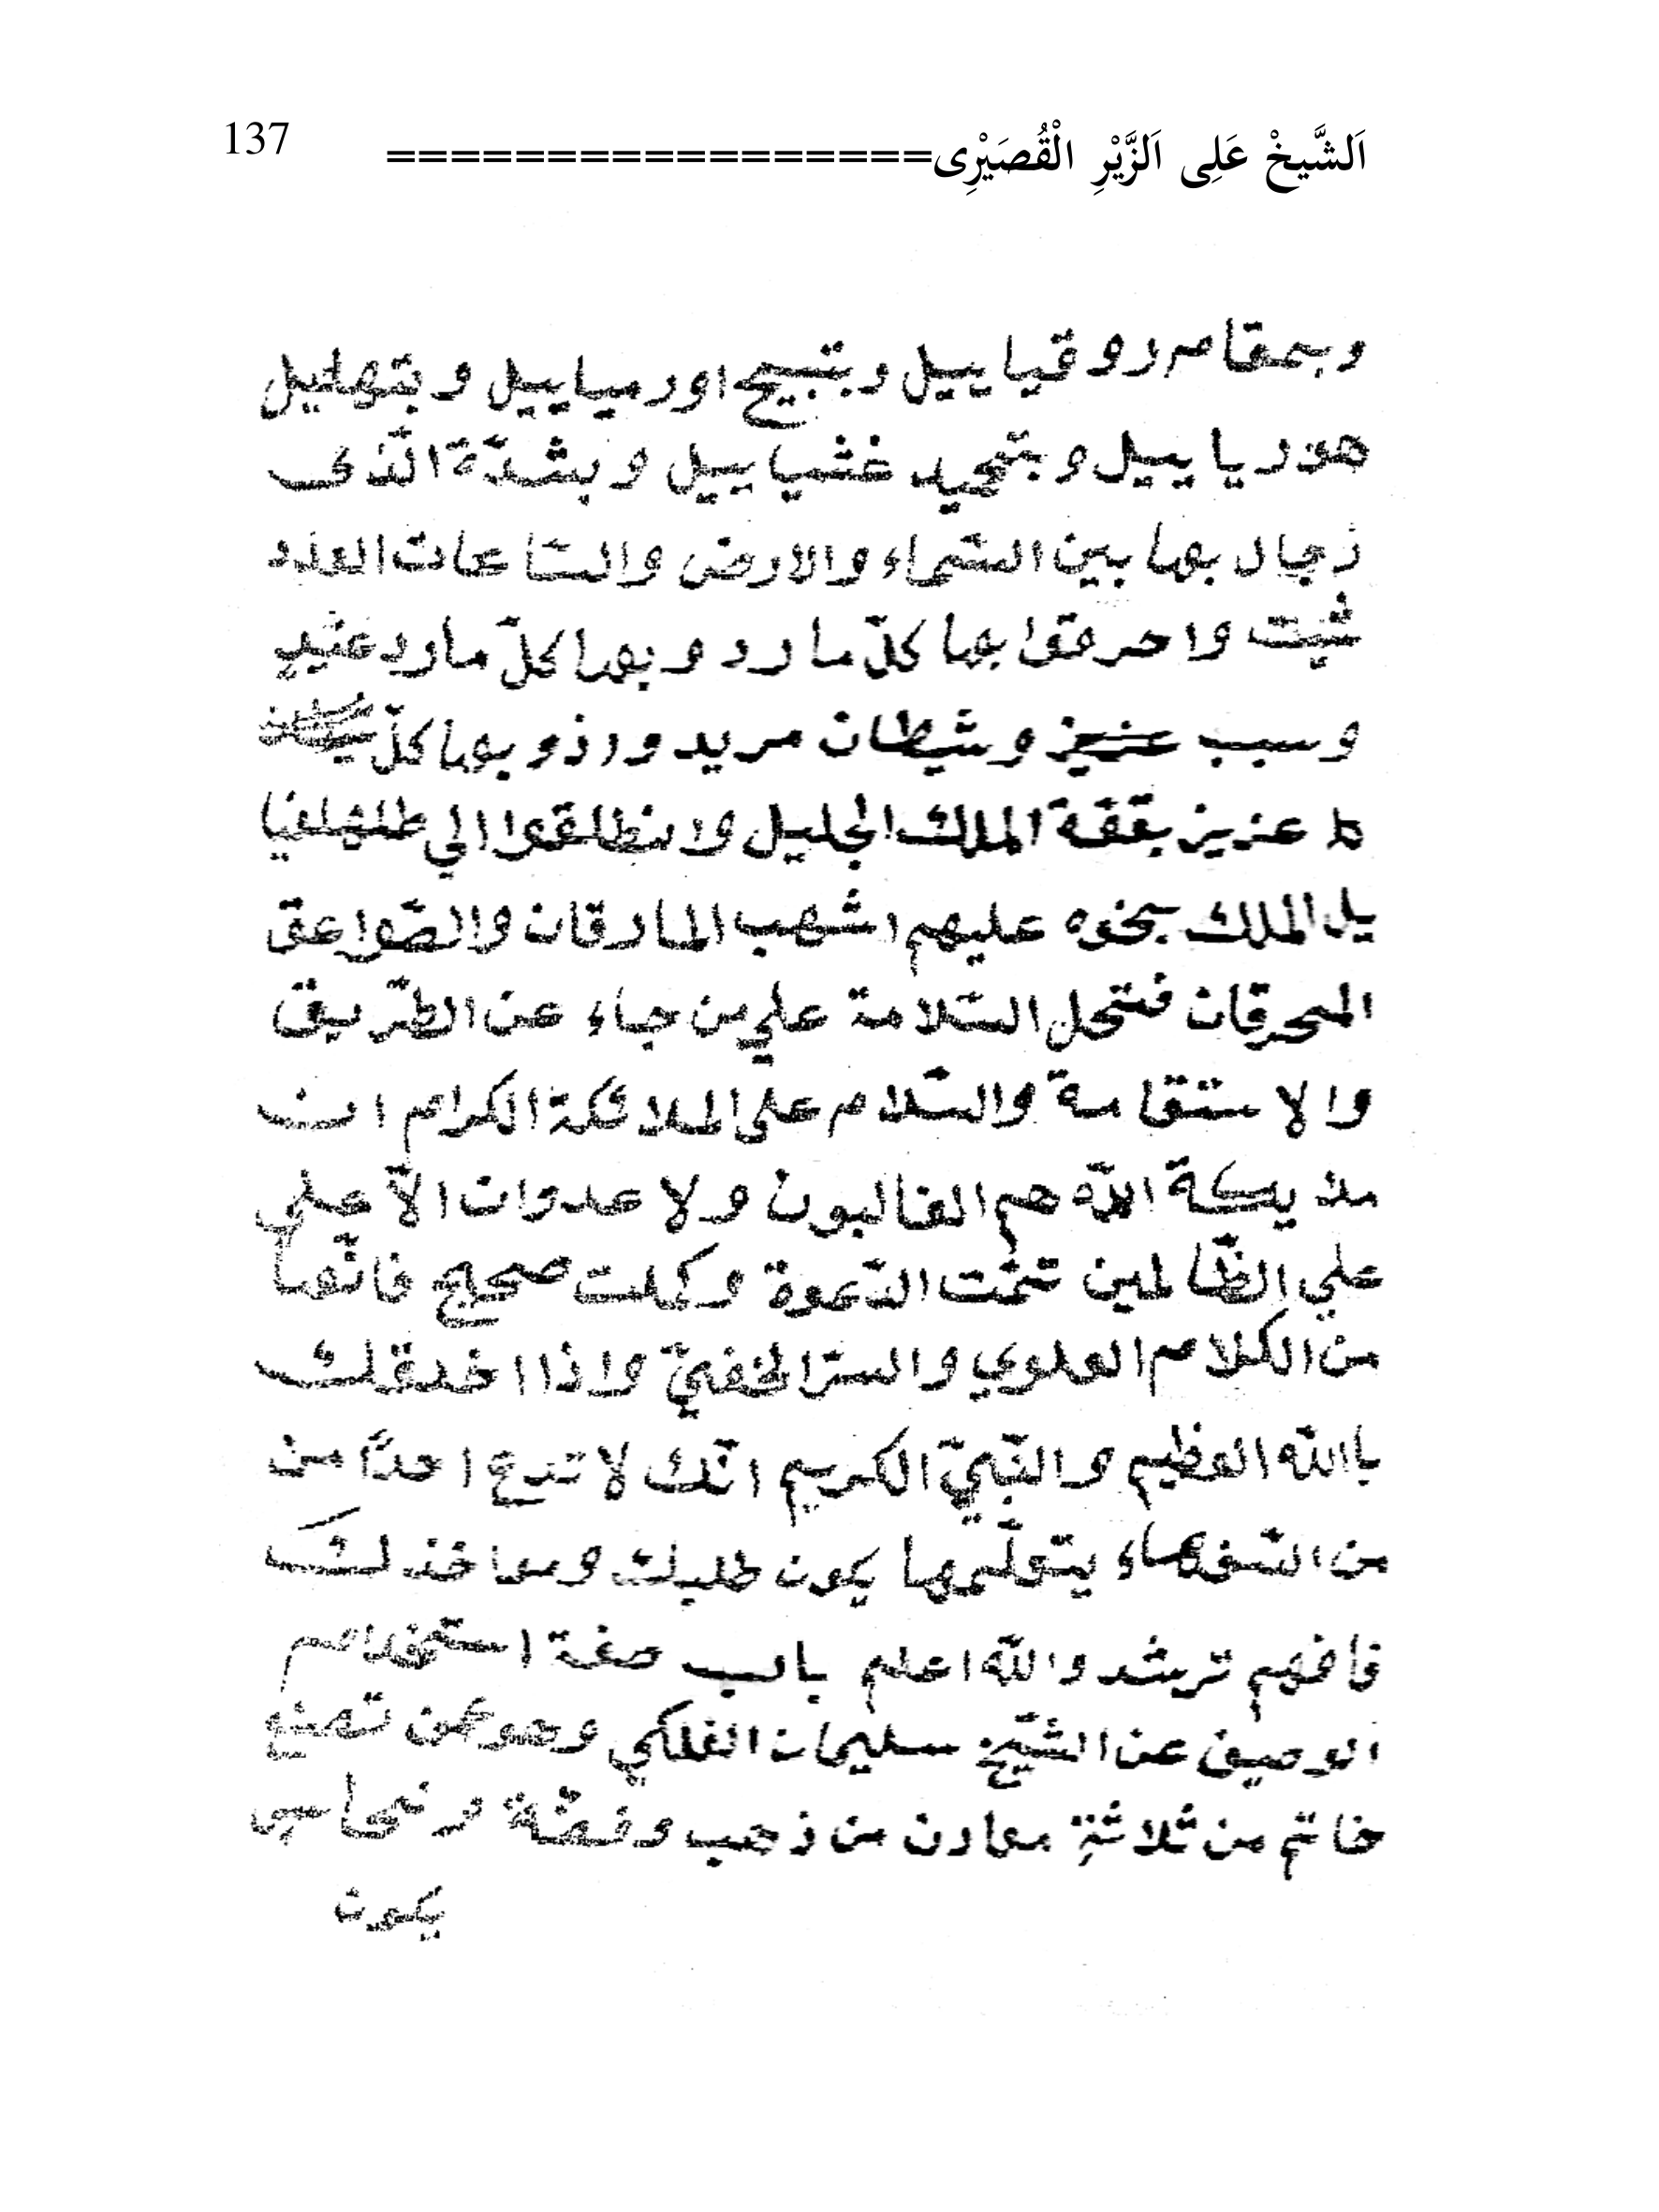 اَلشَّيخْ عَلِى اَلزَّيْرِ الْقُصَيْرِى================= 137
وبمقام روقياييل وبتسبيح اورمياييل وبتهليل
هورياييل وبتمجيد غشياييل وبشدّة الّذى
زجال بها بين السّماء والارض والسّاعات
شيت واحرقوا بها كلّ مارد وبها كلّ مارد عنيد
وسبب عزيز وشيطان مريد وزذو بها كلّ
عزيز بقفة الملك الجليل ولا نطلقوا الي طلهلفيا
يل الملك بخوه عليهم اشهب المارقان والصّواعق
المحرقان فتحل السّلامة علي من جاء عن الطّريق
والاستقامة والسّلام على الملائكة الكرام ان
ملاييكة الله هم الغالبون ولا عدوان الاّ علي
علي الظّالمين تمّت الدّعوة وكملت صحيح فانّها
من الكلام العلوي والسرّ الخفيّ واذا اخدقلك
باالله العظيم والنّبيّ الكريم انّك لا تدع احداً من
من السّفهاء يتعلّمها يكون طلبك ومواخذلك
فافهم ترشد والله اعلم باب صفة استخدام
الوصيف عن الشّيخ سليمان الفلكي وهوعن تصنع
خاتم من ثلاثة معادن من ذهب وفضّة ونحاس
يكون